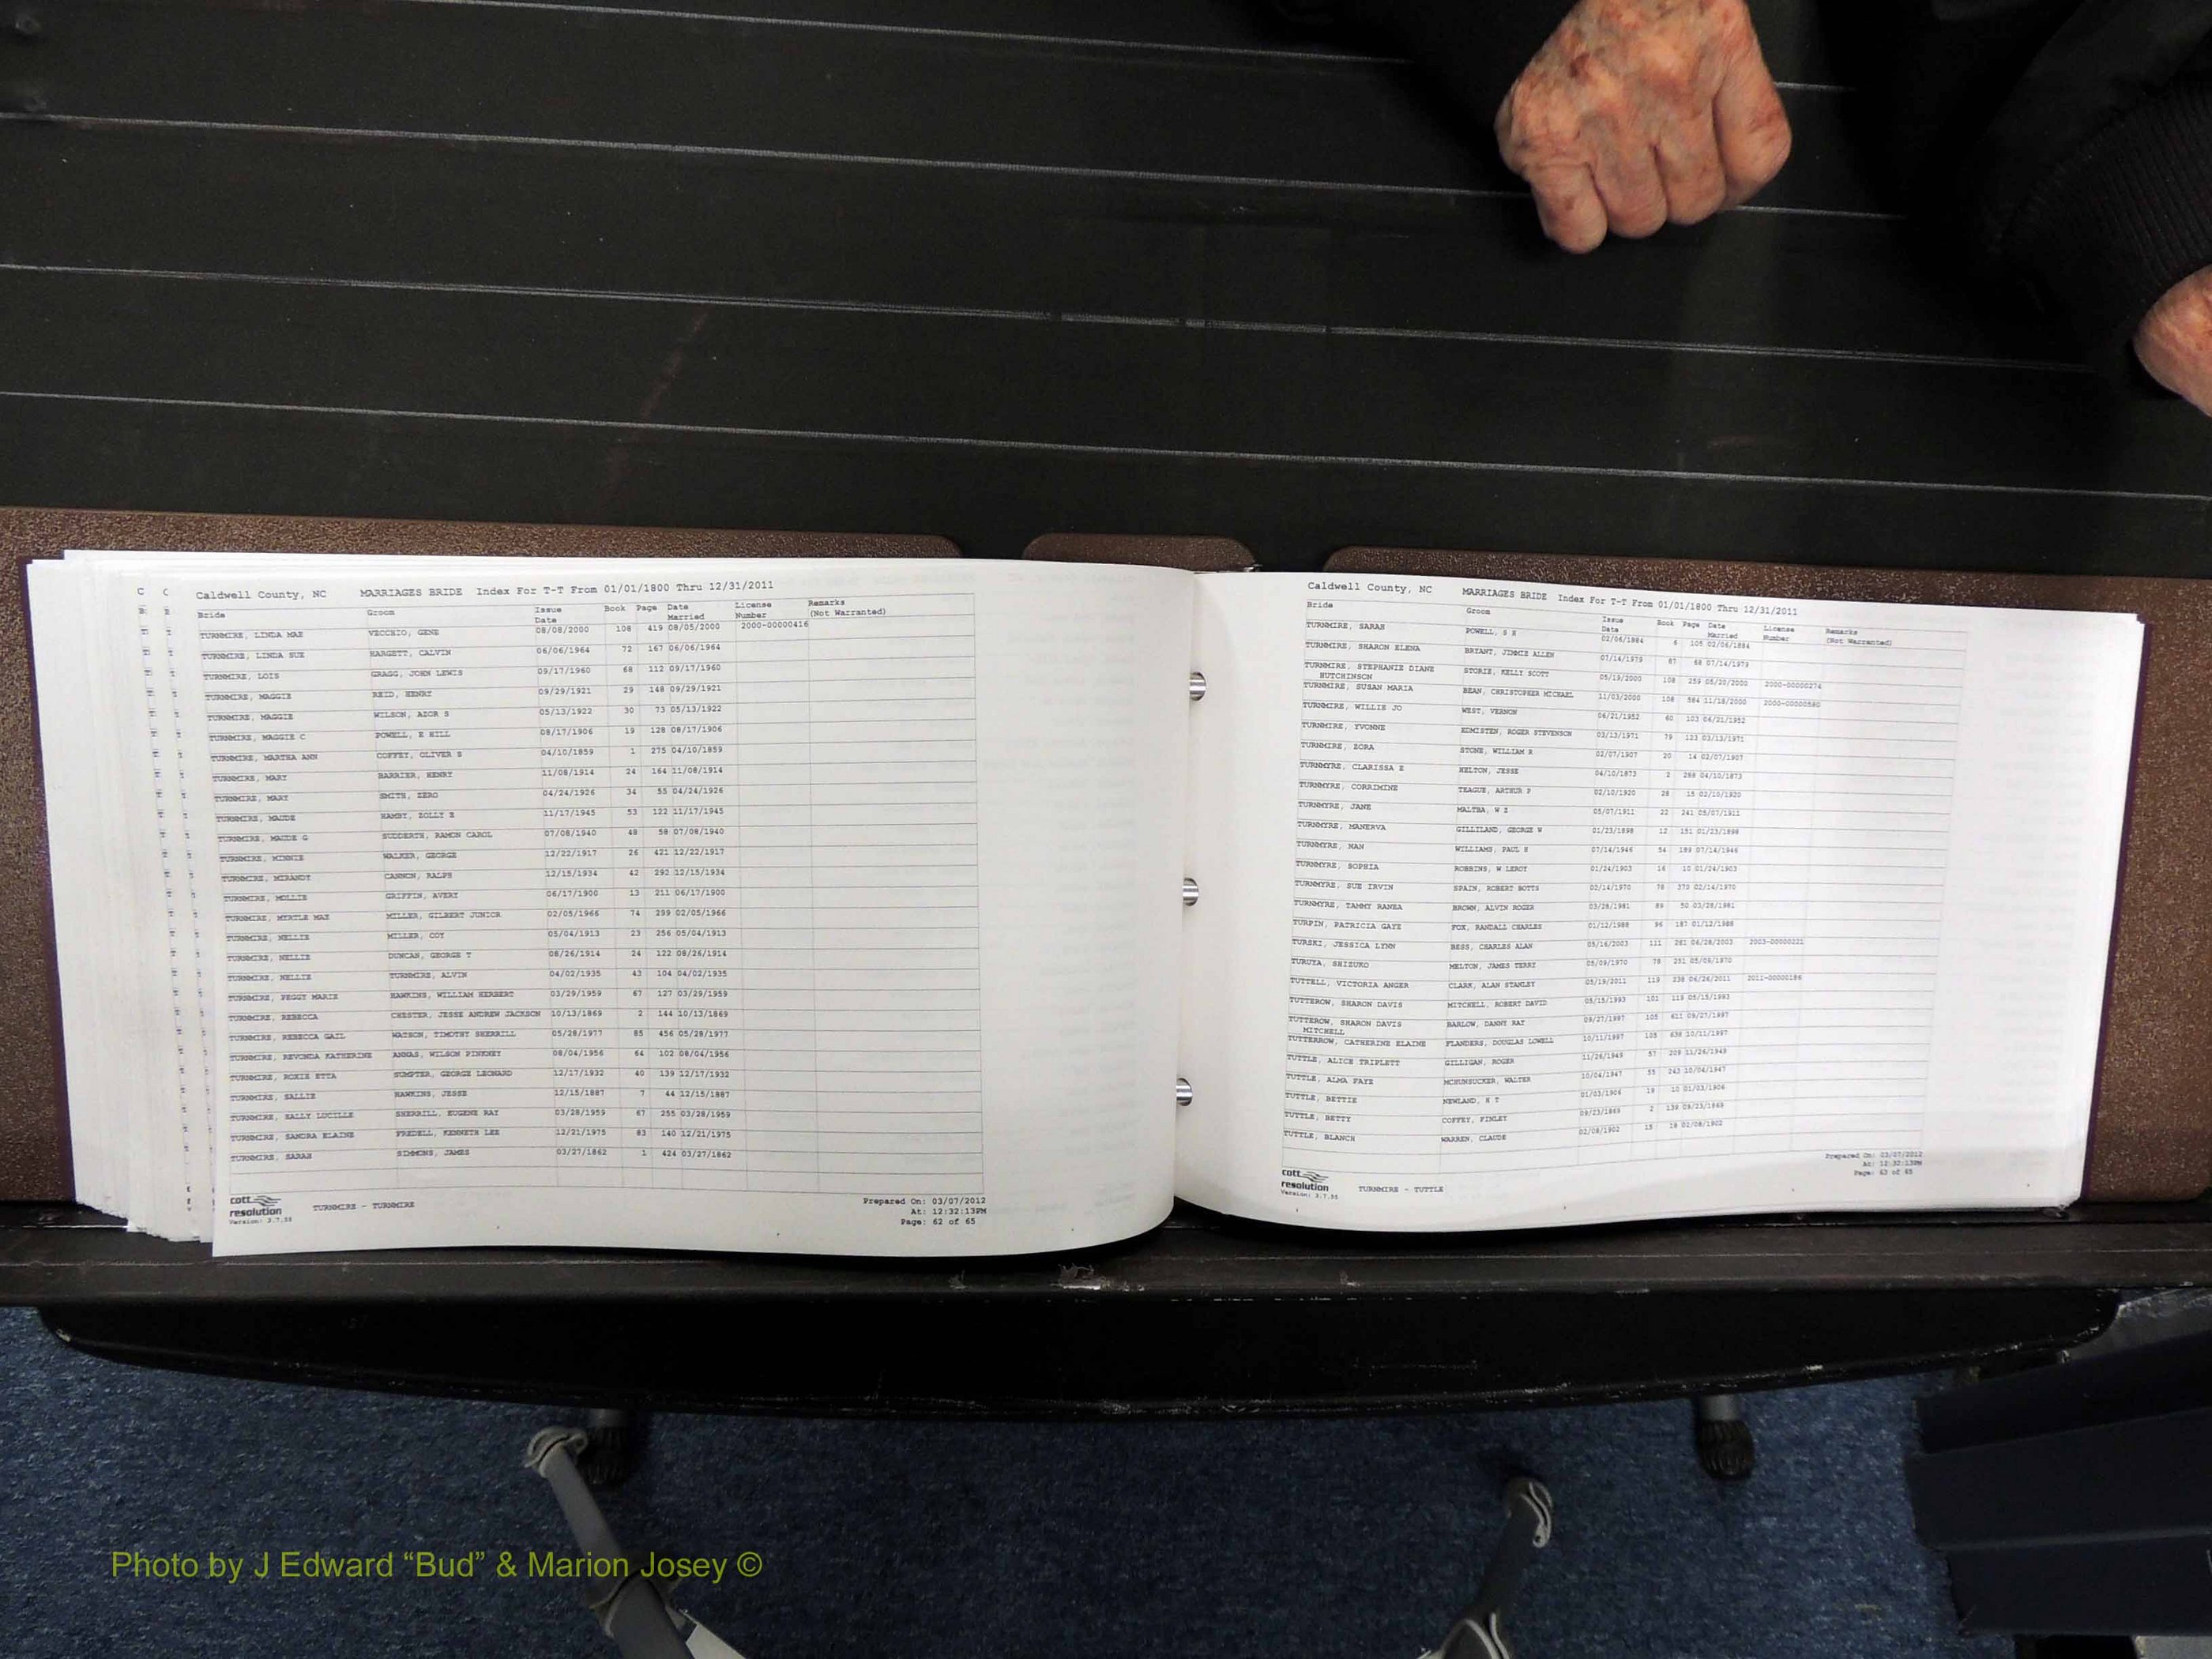 Caldwell County, NC MARRIAGES BRIDE Index For T-T From 01/01/1800 Thru 12/31/2011
Bride Groom Issue Date Book Page Date Married License Number Remarks (Not Warranted)
TURNMIRE, LINDA MAE VECCHIO, GENE 08/08/2000 108 419 08/05/2000 2000-00000416
TURNMIRE, LINDA SUE HARGETT, CALVIN 06/06/1964 72 167 06/06/1964
TURNMIRE, LOIS GRAGG, JOHN LEWIS 09/17/1960 68 112 09/17/1960
TURNMIRE, MAGGIE REID, HENRY 09/29/1921 29 148 09/29/1921
TURNMIRE, MAGGIE WILSON, AZOR S 05/13/1922 30 73 05/13/1922
TURNMIRE, MAGGIE C POWELL, E HILL 08/17/1906 19 128 08/17/1906
TURNMIRE, MARTHA ANN COFFEY, OLIVER S 04/10/1859 1 275 04/10/1859
TURNMIRE, MARY BARRIER, HENRY 11/08/1914 24 164 11/08/1914
TURNMIRE, MARY SMITH, ZERO 04/24/1926 34 55 04/24/1926
TURNMIRE, MAUDE HAMBY, ZOLLY E 11/17/1945 53 122 11/17/1945
TURNMIRE, MAUDE G SUDDERTH, RAMON CAROL 07/08/1940 48 58 07/08/1940
TURNMIRE, MINNIE WALKER, GEORGE 12/22/1917 26 421 12/22/1917
TURNMIRE, MIRANDY CANNON, RALPH 12/15/1934 42 292 12/15/1934
TURNMIRE, MOLLIE GRIFFIN, AVERY 06/17/1900 13 211 06/17/1900
TURNMIRE, MYRTLE MAE MILLER, GILBERT JUNIOR 02/05/1966 74 299 02/05/1966
TURNMIRE, NELLIE MILLER, COY 05/04/1913 23 256 05/04/1913
TURNMIRE, NELLIE DUNCAN, GEORGE T 08/26/1914 24 122 08/26/1914
TURNMIRE, NELLIE TURNMIRE, ALVIN 04/02/1935 43 104 04/02/1935
TURNMIRE, PEGGY MARIE HAWKINS, WILLIAM HERBERT 03/29/1959 67 127 03/29/1959
TURNMIRE, REBECCA CHESTER, JESSE ANDREW JACKSON 10/13/1869 2 144 10/13/1869
TURNMIRE, REBECCA GAIL WATSON, TIMOTHY SHERRILL 05/28/1977 85 456 05/28/1977
TURNMIRE, REVONDA KATHERINE ANNAS, WILSON PINKNEY 08/04/1956 64 102 08/04/1956
TURNMIRE, ROXIE ETTA SUMPTER, GEORGE LEONARD 12/17/1932 40 139 12/17/1932
TURNMIRE, SALLIE HAWKINS, JESSE 12/15/1887 7 44 12/15/1887
TURNMIRE, SALLY LUCILLE SHERRILL, EUGENE RAY 03/28/1959 67 255 03/28/1959
TURNMIRE, SANDRA ELAINE FREDELL, KENNETH LEE 12/21/1975 83 140 12/21/1975
TURNMIRE, SARAH SIMMONS, JAMES 03/27/1862 1 424 03/27/1862
cott resolution
Version: 3.7.55
TURNMIRE - TURNMIRE
Prepared On: 03/07/2012
At: 12:32:13PM
Page: 62 of 65
Caldwell County, NC MARRIAGES BRIDE Index For T-T From 01/01/1800 Thru 12/31/2011
Bride Groom Issue Date Book Page Date Married License Number Remarks (Not Warranted)
TURNMIRE, SARAH POWELL, S H 02/06/1884 6 105 02/06/1884
TURNMIRE, SHARON ELENA BRYANT, JIMMIE ALLEN 07/14/1979 87 68 07/14/1979
TURNMIRE, STEPHANIE DIANE STORIE, KELLY SCOTT 05/19/2000 108 259 05/20/2000 2000-00000274
HUTCHINSON
TURNMIRE, SUSAN MARIA BEAN, CHRISTOPHER MICHAEL 11/03/2000 108 584 11/18/2000 2000-00000580
TURNMIRE, WILLIE JO WEST, VERNON 06/21/1952 60 103 06/21/1952
TURNMIRE, YVONNE EDMISTEN, ROGER STEVENSON 03/13/1971 79 123 03/13/1971
TURNMIRE, ZORA STONE, WILLIAM R 02/07/1907 20 14 02/07/1907
TURNMYRE, CLARISSA E HELTON, JESSE 04/10/1873 2 288 04/10/1873
TURNMYRE, CORRIMINE TEAGUE, ARTHUR P 02/10/1920 28 15 02/10/1920
TURNMYRE, JANE MALTBA, W Z 05/07/1911 22 241 05/07/1911
TURNMYRE, MANERVA GILLILAND, GEORGE W 01/23/1898 12 151 01/23/1898
TURNMYRE, NAN WILLIAMS, PAUL H 07/14/1946 54 189 07/14/1946
TURNMYRE, SOPHIA ROBBINS, W LEROY 01/24/1903 16 10 01/24/1903
TURNMYRE, SUE IRVIN SPAIN, ROBERT BOTTS 02/14/1970 78 370 02/14/1970
TURNMYRE, TAMMY RANEA BROWN, ALVIN ROGER 03/28/1981 89 50 03/28/1981
TURPIN, PATRICIA GAYE FOX, RANDALL CHARLES 01/12/1988 96 187 01/12/1988
TURSKI, JESSICA LYNN BESS, CHARLES ALAN 05/16/2003 111 281 06/28/2003 2003-00000221
TURUYA, SHIZUKO MELTON, JAMES TERRY 05/09/1970 78 251 05/09/1970
TUTTELL, VICTORIA ANGER CLARK, ALAN STANLEY 05/19/2011 119 238 06/26/2011 2011-00000186
TUTTEROW, SHARON DAVIS MITCHELL, ROBERT DAVID 05/15/1993 101 119 05/15/1993
TUTTEROW, SHARON DAVIS BARLOW, DANNY RAY 09/27/1997 105 611 09/27/1997
MITCHELL
TUTTERROW, CATHERINE ELAINE FLANDERS, DOUGLAS LOWELL 10/11/1997 105 638 10/11/1997
TUTTLE, ALICE TRIPLETT GILLIGAN, ROGER 11/26/1949 57 209 11/26/1949
TUTTLE, ALMA FAYE MCHUNSUCKER, WALTER 10/04/1947 55 243 10/04/1947
TUTTLE, BETTIE NEWLAND, H T 01/03/1906 19 10 01/03/1906
TUTTLE, BETTY COFFEY, FINLEY 09/23/1869 2 139 09/23/1869
TUTTLE, BLANCH WARREN, CLAUDE 02/08/1902 15 18 02/08/1902
cott resolution
Version: 3.7.55
TURNMIRE - TUTTLE
Prepared On: 03/07/2012
At: 12:32:13PM
Page: 63 of 65
Photo by J Edward “Bud” & Marion Josey ©